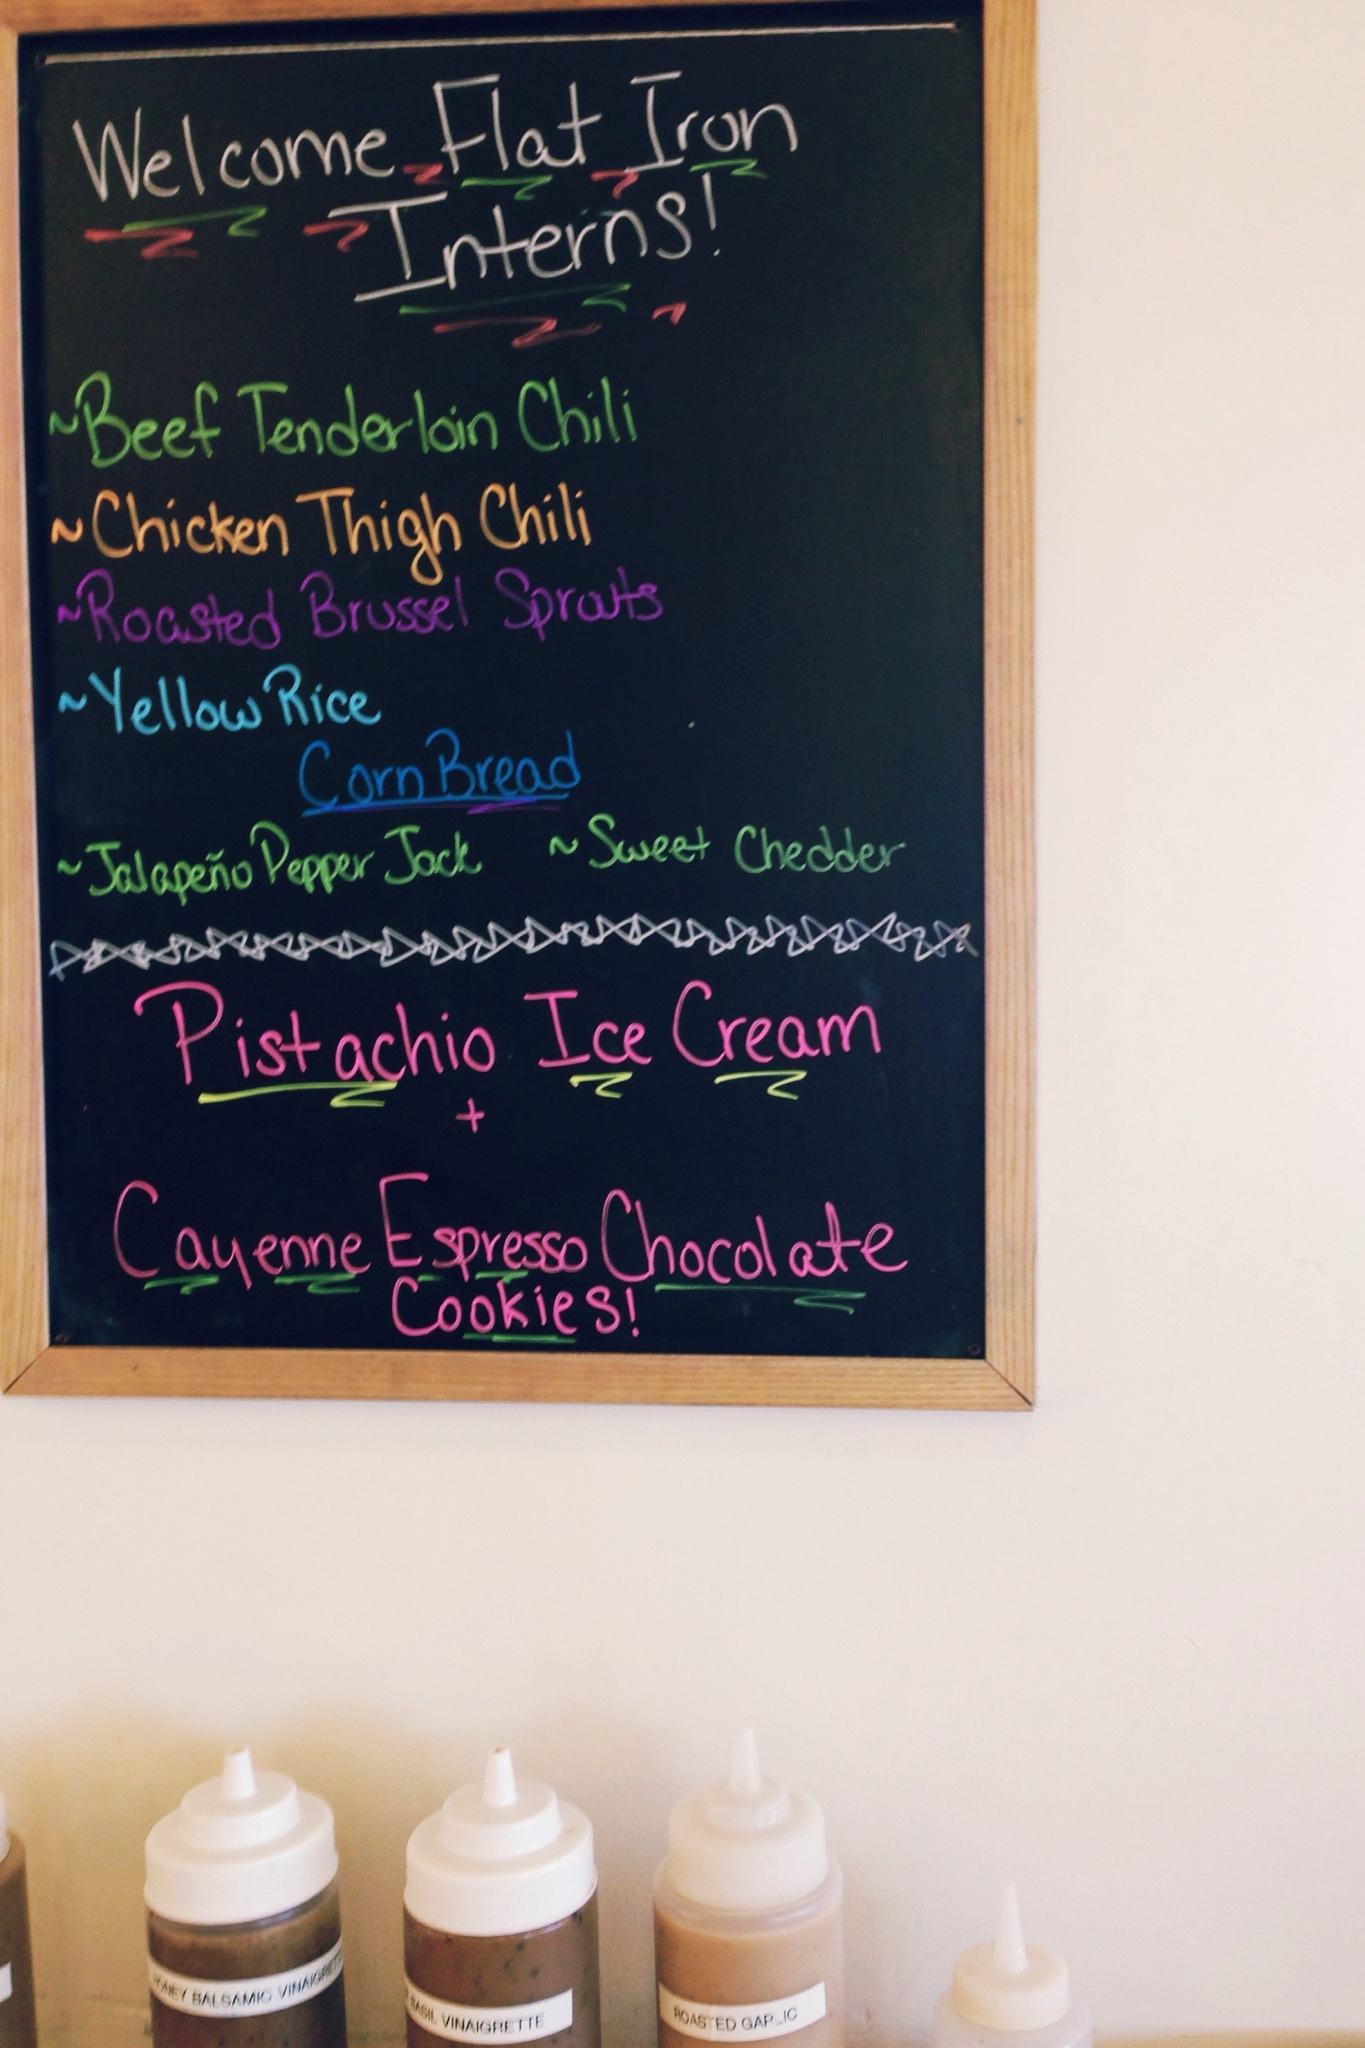 Welcome Flat Iron
Interns!
~Beef Tenderloin Chili
~Chicken Thigh Chili
~Roasted Brussel Sprouts
~Yellow Rice
Corn Bread
~Jalapeño Pepper Jack ~Sweet Chedder
Pistachio Ice Cream
+
Cayenne Espresso Chocolate
Cookies!
BALSAMIC VINAIGRETTE
BASIL VINAIGRETTE
ROASTED GARLIC